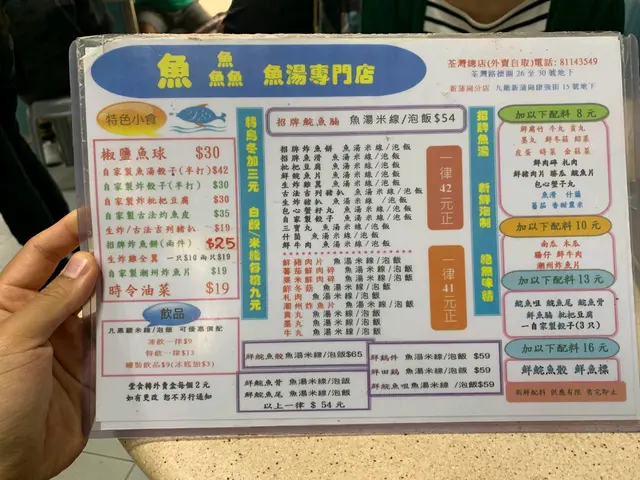 魚 魚魚魚 魚湯專門店
荃灣總店(外賣自取)電話: 81143549
荃灣路德圍 26 至 30 號地下
新蒲崗分店 九龍新蒲崗康強街 15 號地下
特色小食
椒鹽魚球 $30
自家製魚湯餃子(半打) $42
自家製炸餃子(半打) $30
自家製炸枇杷豆腐 $30
自家製古法灼魚皮 $35
生炸/古法吉列豬扒 $19
招牌炸魚餅(兩件) $25
生炸雞全翼 一只$10 兩只$19
自家製潮州炸魚片 $19
時令油菜 $19
飲品
凍飲一律$9
罐裝飲品$9(冰底加$3)
堂食轉外賣盒每個 2 元
如有更改 恕不另行通知
轉烏冬加三元 白飯/米線各碗九元
招牌鯇魚腩 魚湯米線/泡飯 $54
招牌炸魚餅 魚湯米線/泡飯
招牌魚滑 魚湯米線/泡飯
枇杷豆腐 魚湯米線/泡飯
鯇魚片 魚湯米線/泡飯
生炸雞翼 魚湯米線/泡飯
古法吉列豬扒 魚湯米線/泡飯
生炸豬扒 魚湯米線/泡飯
包心蟹籽丸 魚湯米線/泡飯
自家製餃子 魚湯米線/泡飯
三寶丸 魚湯米線/泡飯
什菌 魚湯米線/泡飯
鮮牛肉 魚湯米線/泡飯
一律 42 元正
鮮豬肉片 魚湯米線/泡飯
蕃茄鮮肉碎 魚湯米線/泡飯
粟米鮮肉碎 魚湯米線/泡飯
鮮冬菇 魚湯米線/泡飯
札肉 魚湯米線/泡飯
潮州炸魚片 魚湯米線/泡飯
貢丸 魚湯米線/泡飯
墨丸 魚湯米線/泡飯
牛丸 魚湯米線/泡飯
一律 41 元正
鮮鯇魚骹 魚湯米線/泡飯$65
鮮鯇魚骨 魚湯米線/泡飯
鮮鯇魚尾 魚湯米線/泡飯
以上一律 $ 54 元
鮮鵝件 魚湯米線/泡飯 $59
鮮田鷄 魚湯米線/泡飯 $59
鮮鯇魚咀 魚湯米線/泡飯 $59
招牌魚湯 新鮮泡制 絕無味精
加以下配料 8 元
鮮腐竹 牛丸 貢丸
墨丸 鮮冬菇 雜菜
皮蛋 時菜 金菇菜
鮮肉碎 札肉
鮮豬肉片 勝瓜 鯇魚片
包心蟹子丸
魚滑 什菌
蕃茄 香甜粟米
加以下配料 10 元
南瓜 木瓜
腸仔 鮮牛肉
潮州魚片
加以下配料 13 元
鯇魚咀 鯇魚尾 鯇魚骨
鮮魚腩 枇杷豆腐
一自家製餃子(3 只)
加以下配料 16 元
鮮鯇魚骹 鮮魚樸
新鮮配料 供應有限 售完即止